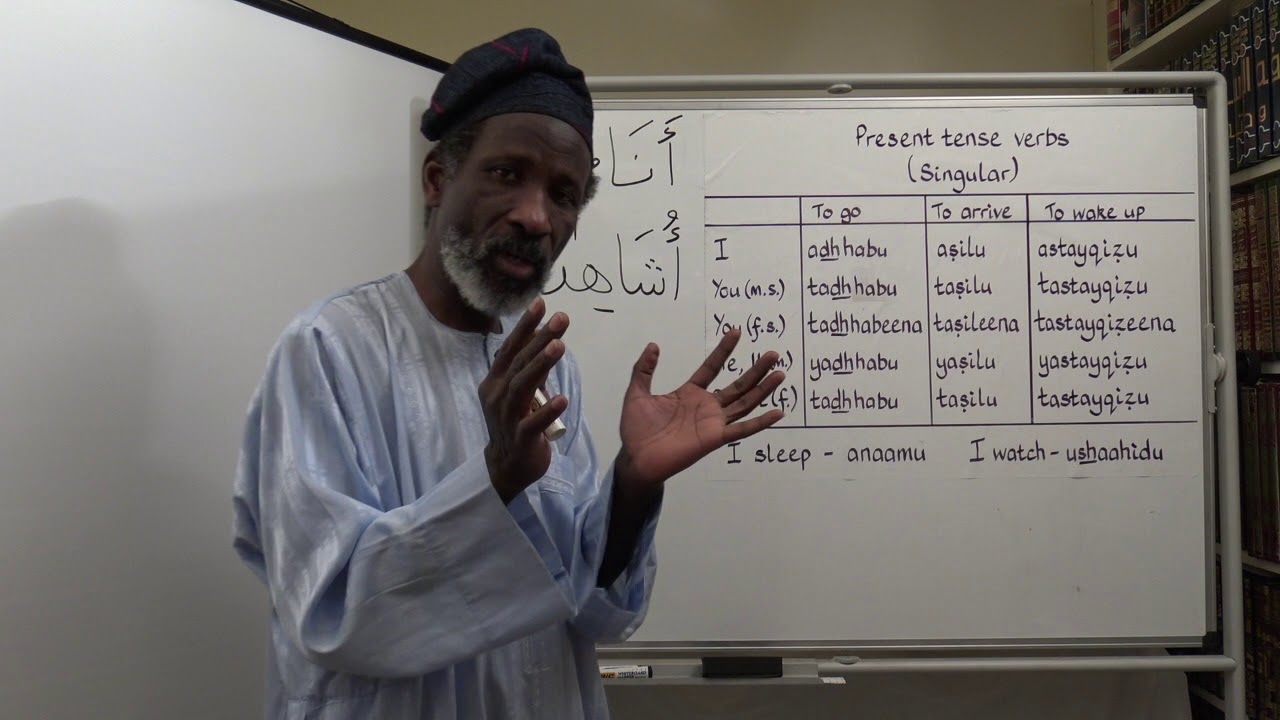 أَنَامُ
أُشَاهِدُ
Present tense verbs
(Singular)
To go To arrive To wake up
I a<u>dh</u>habu aṣilu astayqiẓu
You (m.s.) ta<u>dh</u>habu taṣilu tastayqiẓu
You (f.s.) ta<u>dh</u>habeena taṣileena tastayqiẓeena
ya<u>dh</u>habu yaṣilu yastayqiẓu
(f.) ta<u>dh</u>habu taṣilu tastayqiẓu
I sleep - anaamu I watch - u<u>sh</u>aahidu